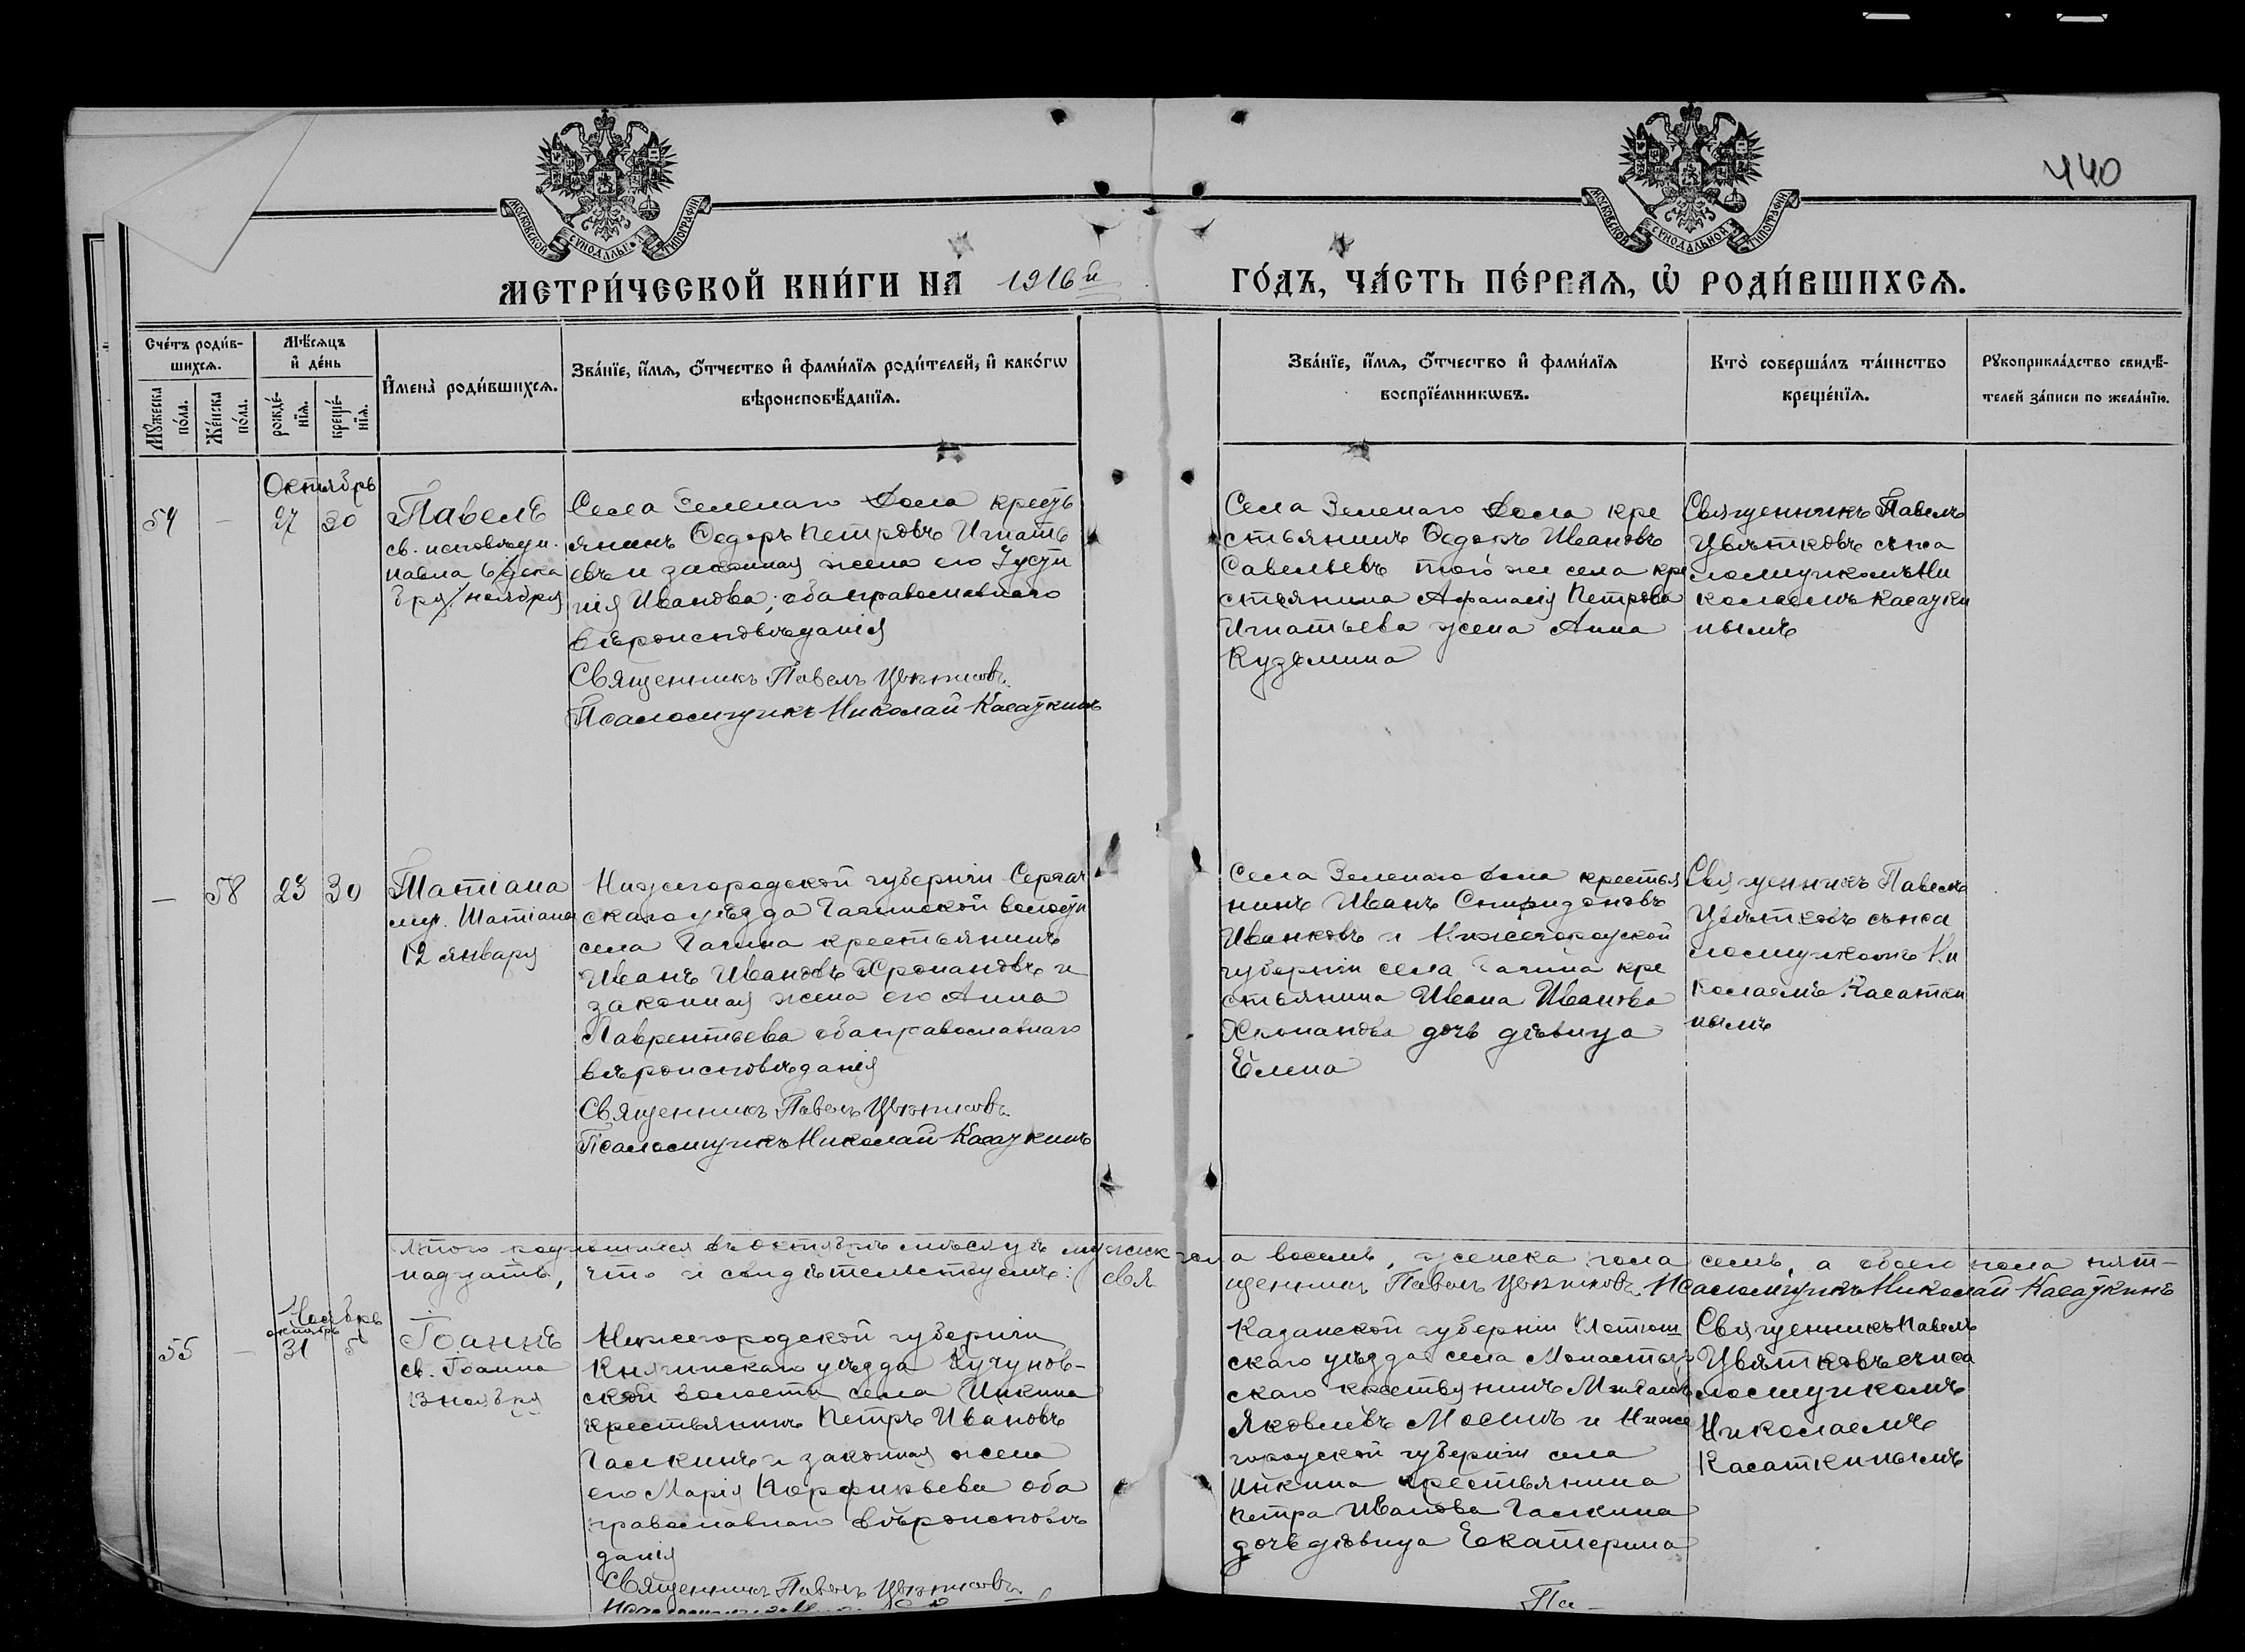 440
МОСКОВСКОЙ СУНОДАЛЬНОЙ ТИПОГРАФІИ
МОСКОВСКОЙ СУНОДАЛЬНОЙ ТИПОГРАФІИ
МЕТРИ́ЧЕСКОЙ КНИ́ГИ НА 1916й ГО́ДЪ, ЧА́СТЬ ПЕ́РВАѦ, Ѡ҆ РОДИ́ВШИХСѦ.
Сче́тъ роди́в-
шихсѧ.
Мꙋ́жеска
по́ла.
Же́нска
по́ла.
Мѣ́сѧцъ
и҆ де́нь
рожде́-
нїѧ.
креще́-
нїѧ.
И҆мена̀ роди́вшихсѧ.
Зва́нїе, и҆́мѧ, ѻ҆́тчество и҆ фами́лїѧ роди́телей, и҆ како́гѡ
вѣроисповѣ́данїѧ.
Зва́нїе, и҆́мѧ, ѻ҆́тчество и҆ фами́лїѧ
воспрїе́мникѡвъ.
Кто̀ соверша́лъ та́инство
креще́нїѧ.
Рꙋкоприкла́дство свидѣ́-
телей за́писи по жела́нїю.
Октябрь
54 — 27 30
Павелъ
св. исповѣдн.
Павла 6
ноября
Села Зеленаго Дола кресть
янинъ Ѳедоръ Петровъ Игнать
евъ и законная жена его Іусти
нія Иванова; оба православнаго
вѣроисповѣданія
Священникъ Павелъ Цвѣтковъ.
Псаломщикъ Николай Касаткинъ
Села Зеленаго Дола кре
стьянинъ Ѳедоръ Ивановъ
Савельевъ того же села кре
стьянина Афанасія Петрова
Игнатьева жена Анна
Кузьмина
Священникъ Павелъ
Цвѣтковъ съ пса
ломщикомъ Ни
колаемъ Касатки
нымъ
— 58 23 30
Татіана
муч. Татіана
12 января
Нижегородской губерніи Сергач
скаго уѣзда Гагинской волости
села Гагина крестьянинъ
Иванъ Ивановъ Хромановъ и
законная жена его Анна
Лаврентьева оба православнаго
вѣроисповѣданія
Священникъ Павелъ Цвѣтковъ.
Псаломщикъ Николай Касаткинъ
Села Зеленаго Дола крестья
нинъ Иванъ Спиридоновъ
Иванковъ и Нижегородской
губерніи села Гагина кре
стьянина Ивана Иванова
Хроманова дочь дѣвица
Елена
Священникъ Павелъ
Цвѣтковъ съ пса
ломщикомъ Ни
колаемъ Касатки
нымъ
Итого родившихся въ октябрѣ мѣсяцѣ мужск пола восемь, женска пола семь, а обоего пола пят-
надцать, что и свидѣтельствуемъ: Священникъ Павелъ Цвѣтковъ. Псаломщикъ Николай Касаткинъ
Ноябрь
октябрь
55 — 31 5
Іоаннъ
св. Іоанна
13 ноября
Нижегородской губерніи
Княгинскаго уѣзда
ской волости села Инкина
крестьянинъ Петръ Ивановъ
Галкинъ и законная жена
его Марія Порфирьева оба
православнаго вѣроисповѣ
данія
Священникъ Павелъ Цвѣтковъ.
Казанской губерніи Тетюш
скаго уѣзда села Монастыр
скаго крестьянинъ
Яковлевъ Мосинъ и Ниже
городской губерніи села
Инкина крестьянина
Петра Иванова Галкина
дочь дѣвица Екатерина
Священникъ Павелъ
Цвѣтковъ съ пса
ломщикомъ
Николаемъ
Касаткинымъ